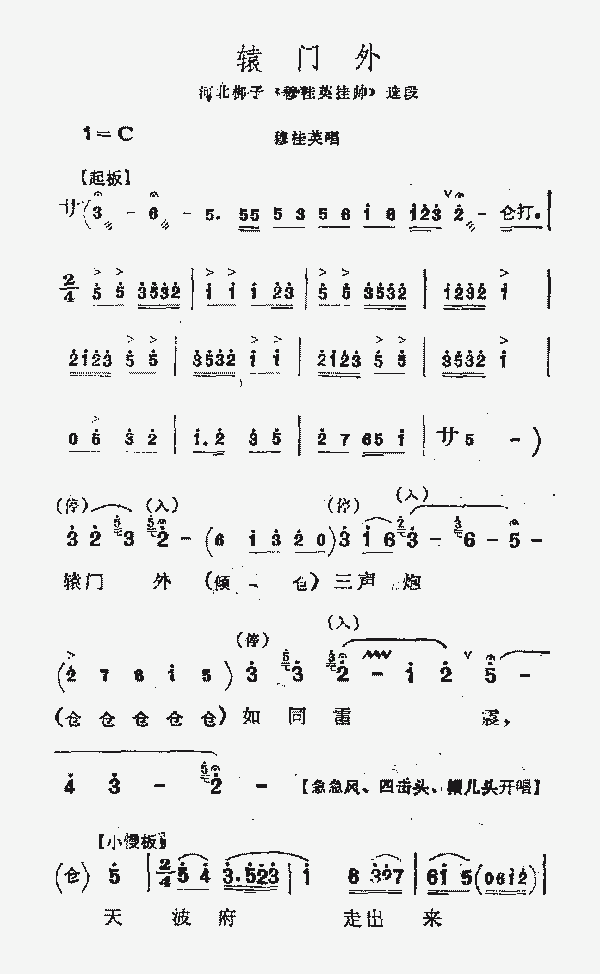 辕门外
河北梆子《穆桂英挂帅》选段
1=C 穆桂英唱
【起板】
廿(3 - 6 - 5. 55 5 3 5 6 i 6 i23 2 - 仓打.
2/4 5 5 3532 | i i i 23 | 5 5 3532 | i232 i |
2i23 5 5 | 3532 i i | 2i23 5 5 | 3532 i |
0 6 3 2 | i.2 3 5 | 2 7 65 i | 廿 5 -)
(停) (入) (停) (入)
3 2 3 2 - (6 i 3 2 0) 3 i 6 3 - 6 - 5 -
辕门 外 (倾 - 仓) 三声 炮
(停) (入)
(2 7 6 i 5) 3 3 2 - i 2 5 -
(仓 仓 仓 仓 仓) 如 同 雷 震,
4 3 - 2 - 【急急风、四击头、帽儿头开唱】
【小慢板】
(仓) 5 | 2/4 5 4 3.523 | i 6 327 | 6i 5 (06i2) |
天 波 府 走出 来